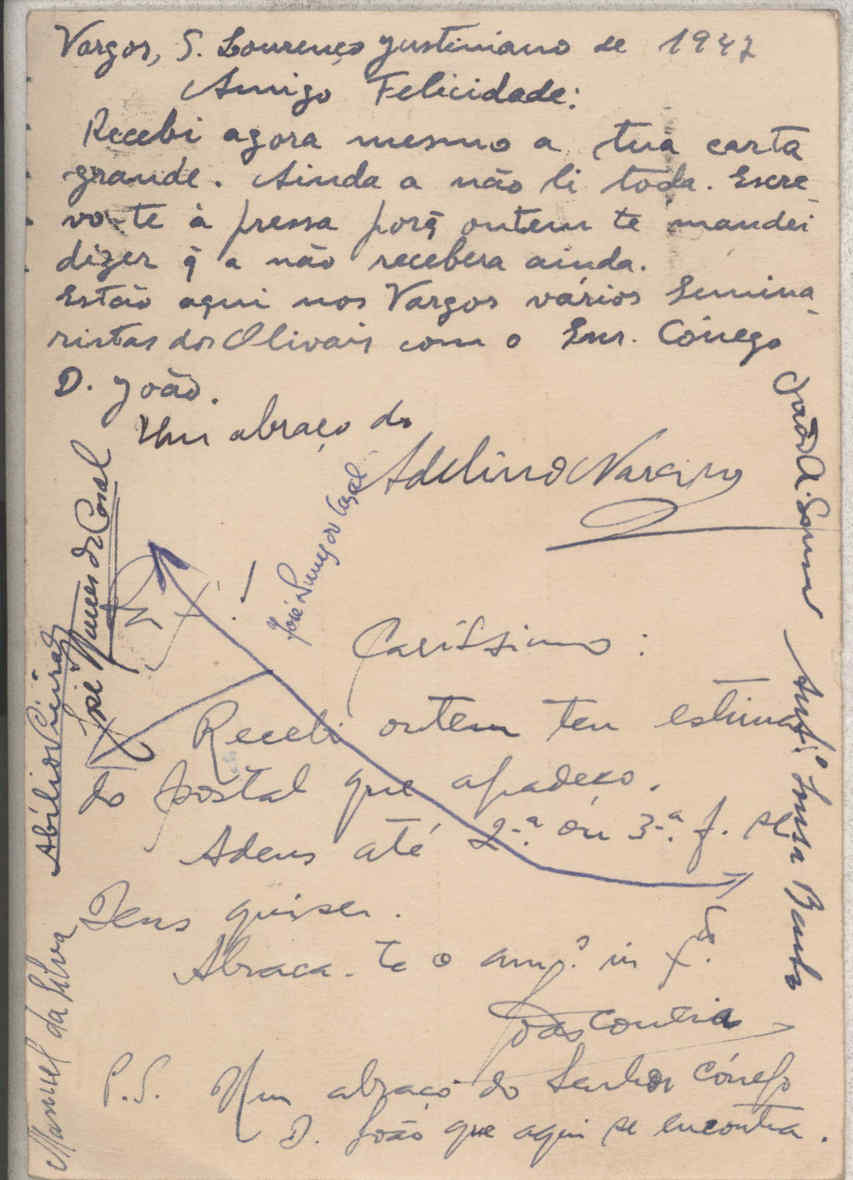 Vargos, S. Lourenço Justiniano de 1947
Amigo Felicidade:
Recebi agora mesmo a tua carta
grande. Ainda a não li toda. Escre
vo-te à pressa porq̃ ontem te mandei
dizer q̃ a não recebera ainda.
Estão aqui nos Vargos vários Semina-
ristas dos Olivais com o Snr. Cónego
D. João.
Um abraço do
Adelino
José Nunes do Casal
José Nunes do Casal
Abílio
Manuel da Silva
João A. Sousa
Antº. Sousa
Caríssimo:
Recebi ontem teu estima
do postal que agradeço.
Adeus até 2-ª ou 3-ª f. se
Deus quiser.
Abraça-te o am.º in
João Correia
P.S. Um abraço do Senhor Cónego
D. João que aqui se encontra.